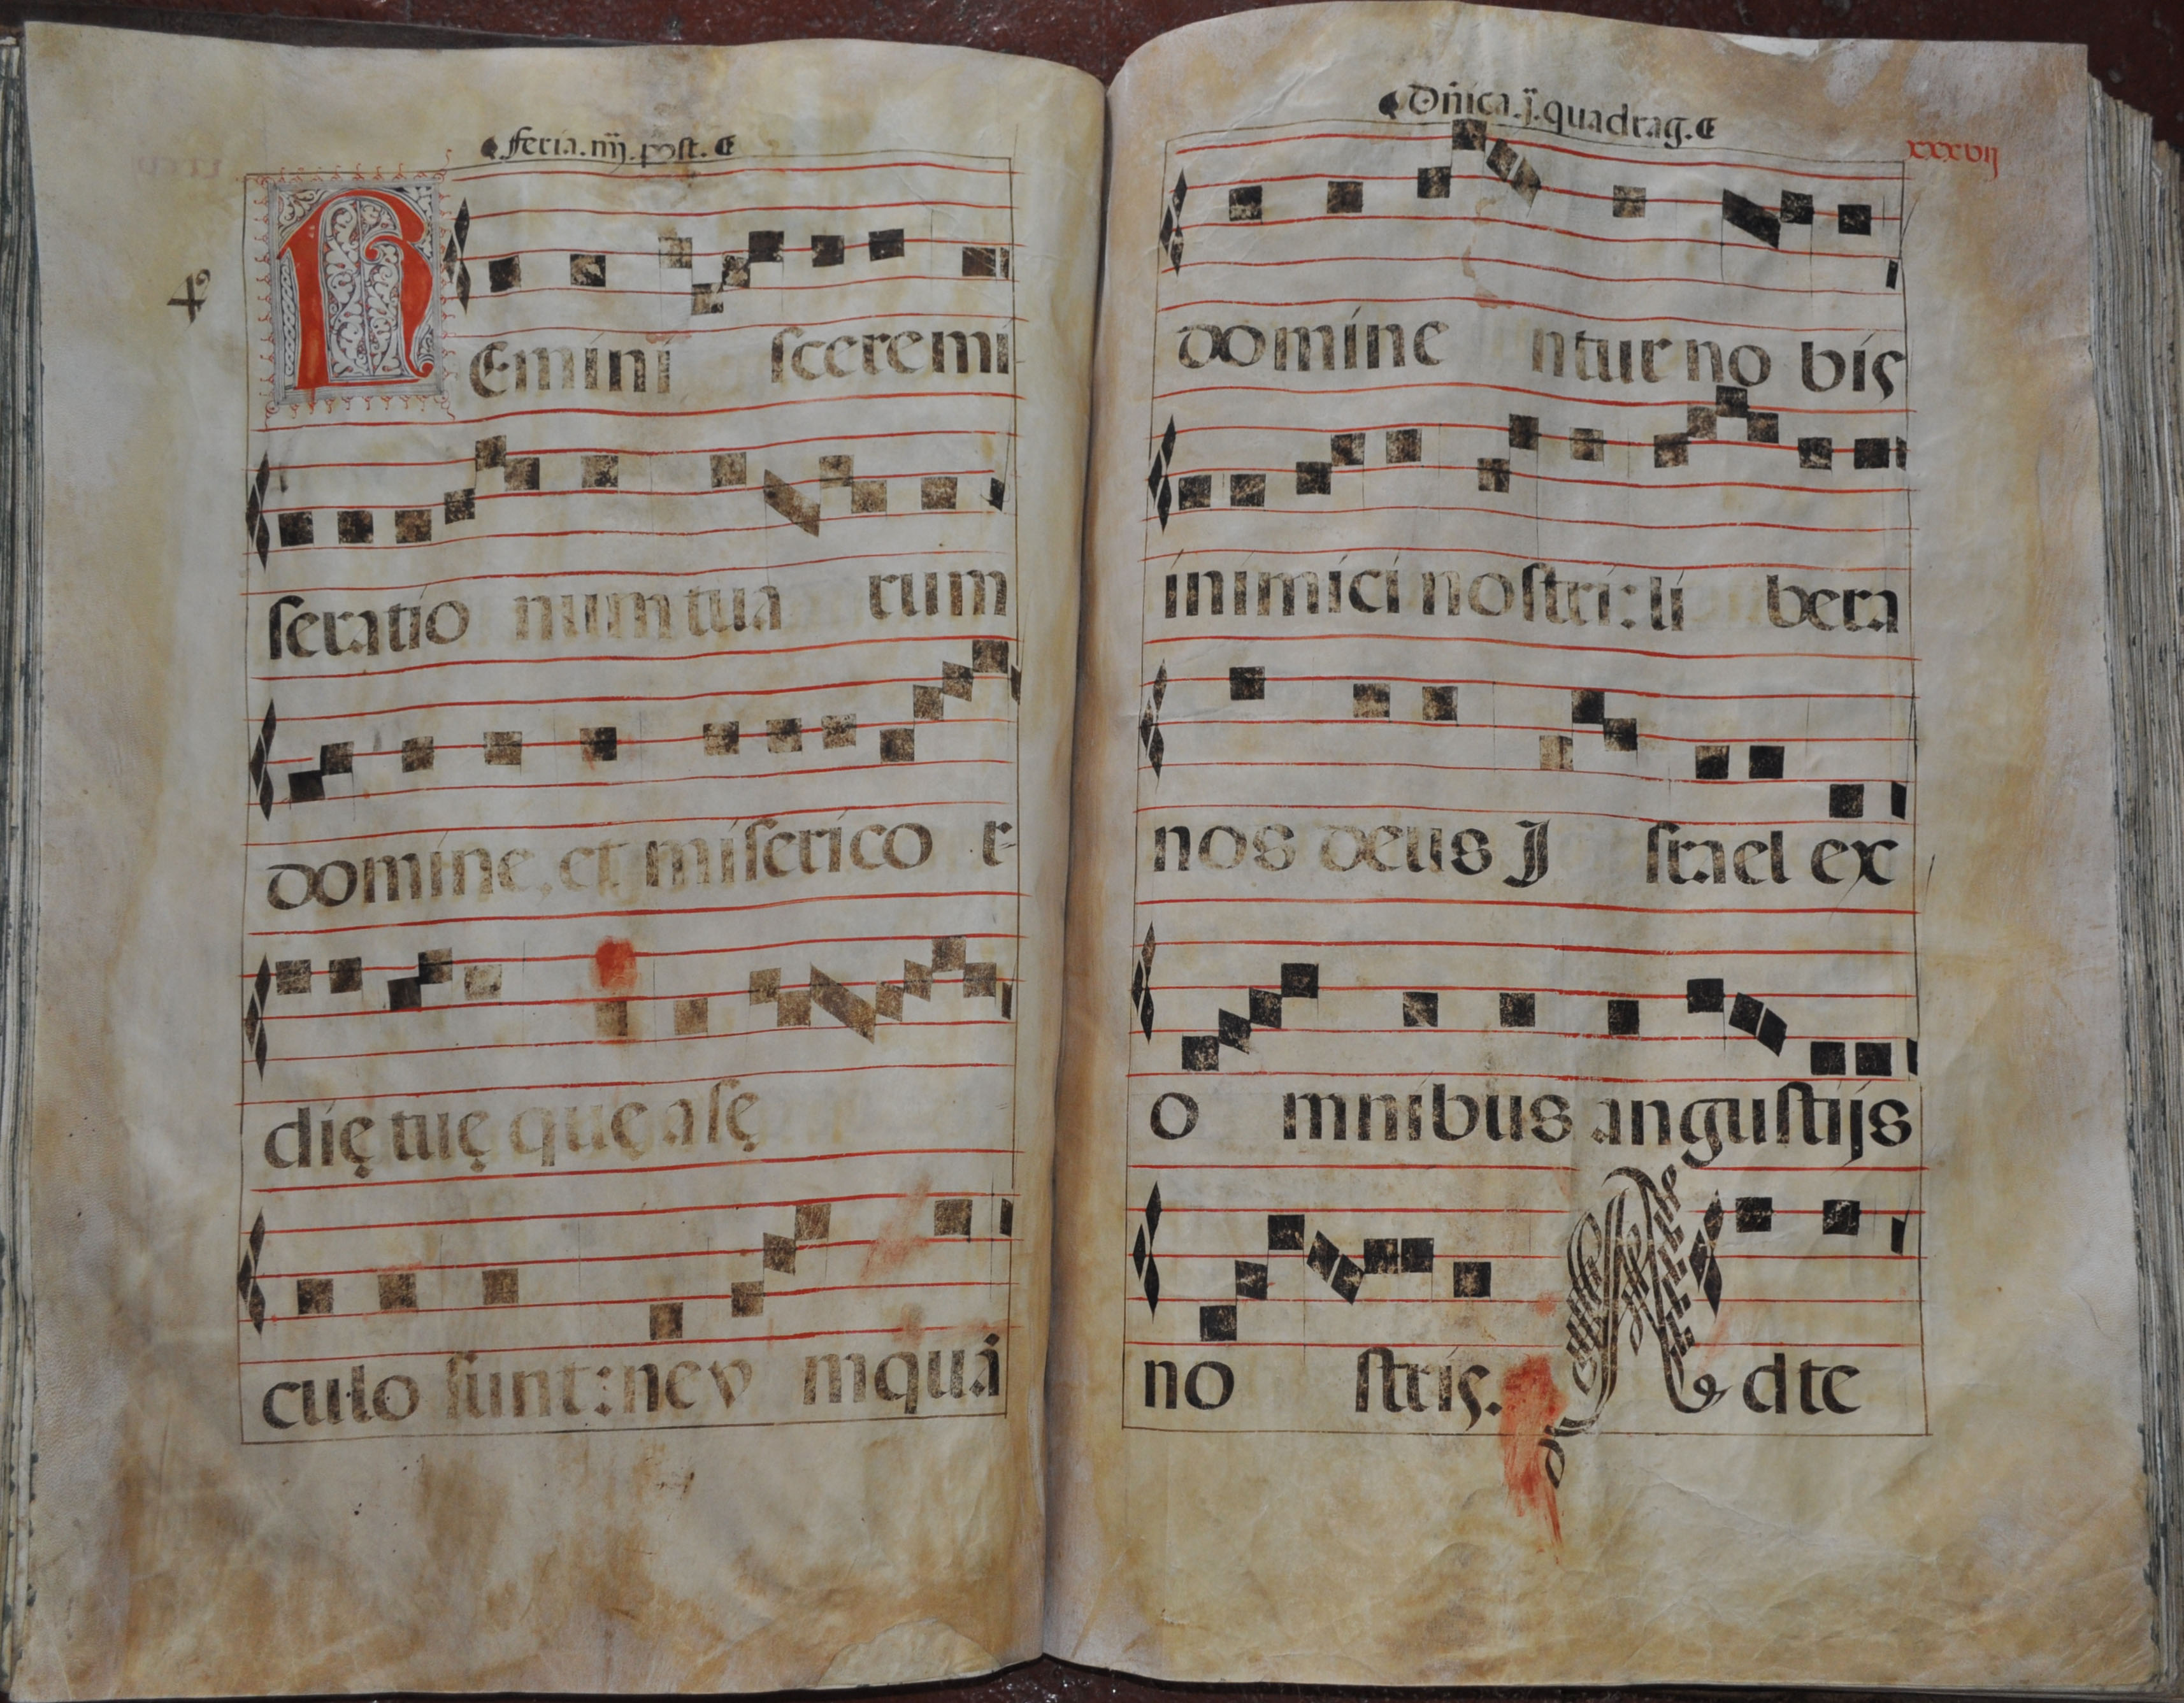 feria.iiij.post.
4
REmini sceremi
seratio numtua rum
domine.et misericor-
dię tuę quę a sę
culo sunt:nev mquā
Dñica.j.quadrag.
xxxvij
domine ntur no bis
inimici nostri:li bera
nos deus J srael ex
o mnibus angustijs
no stris. Adte